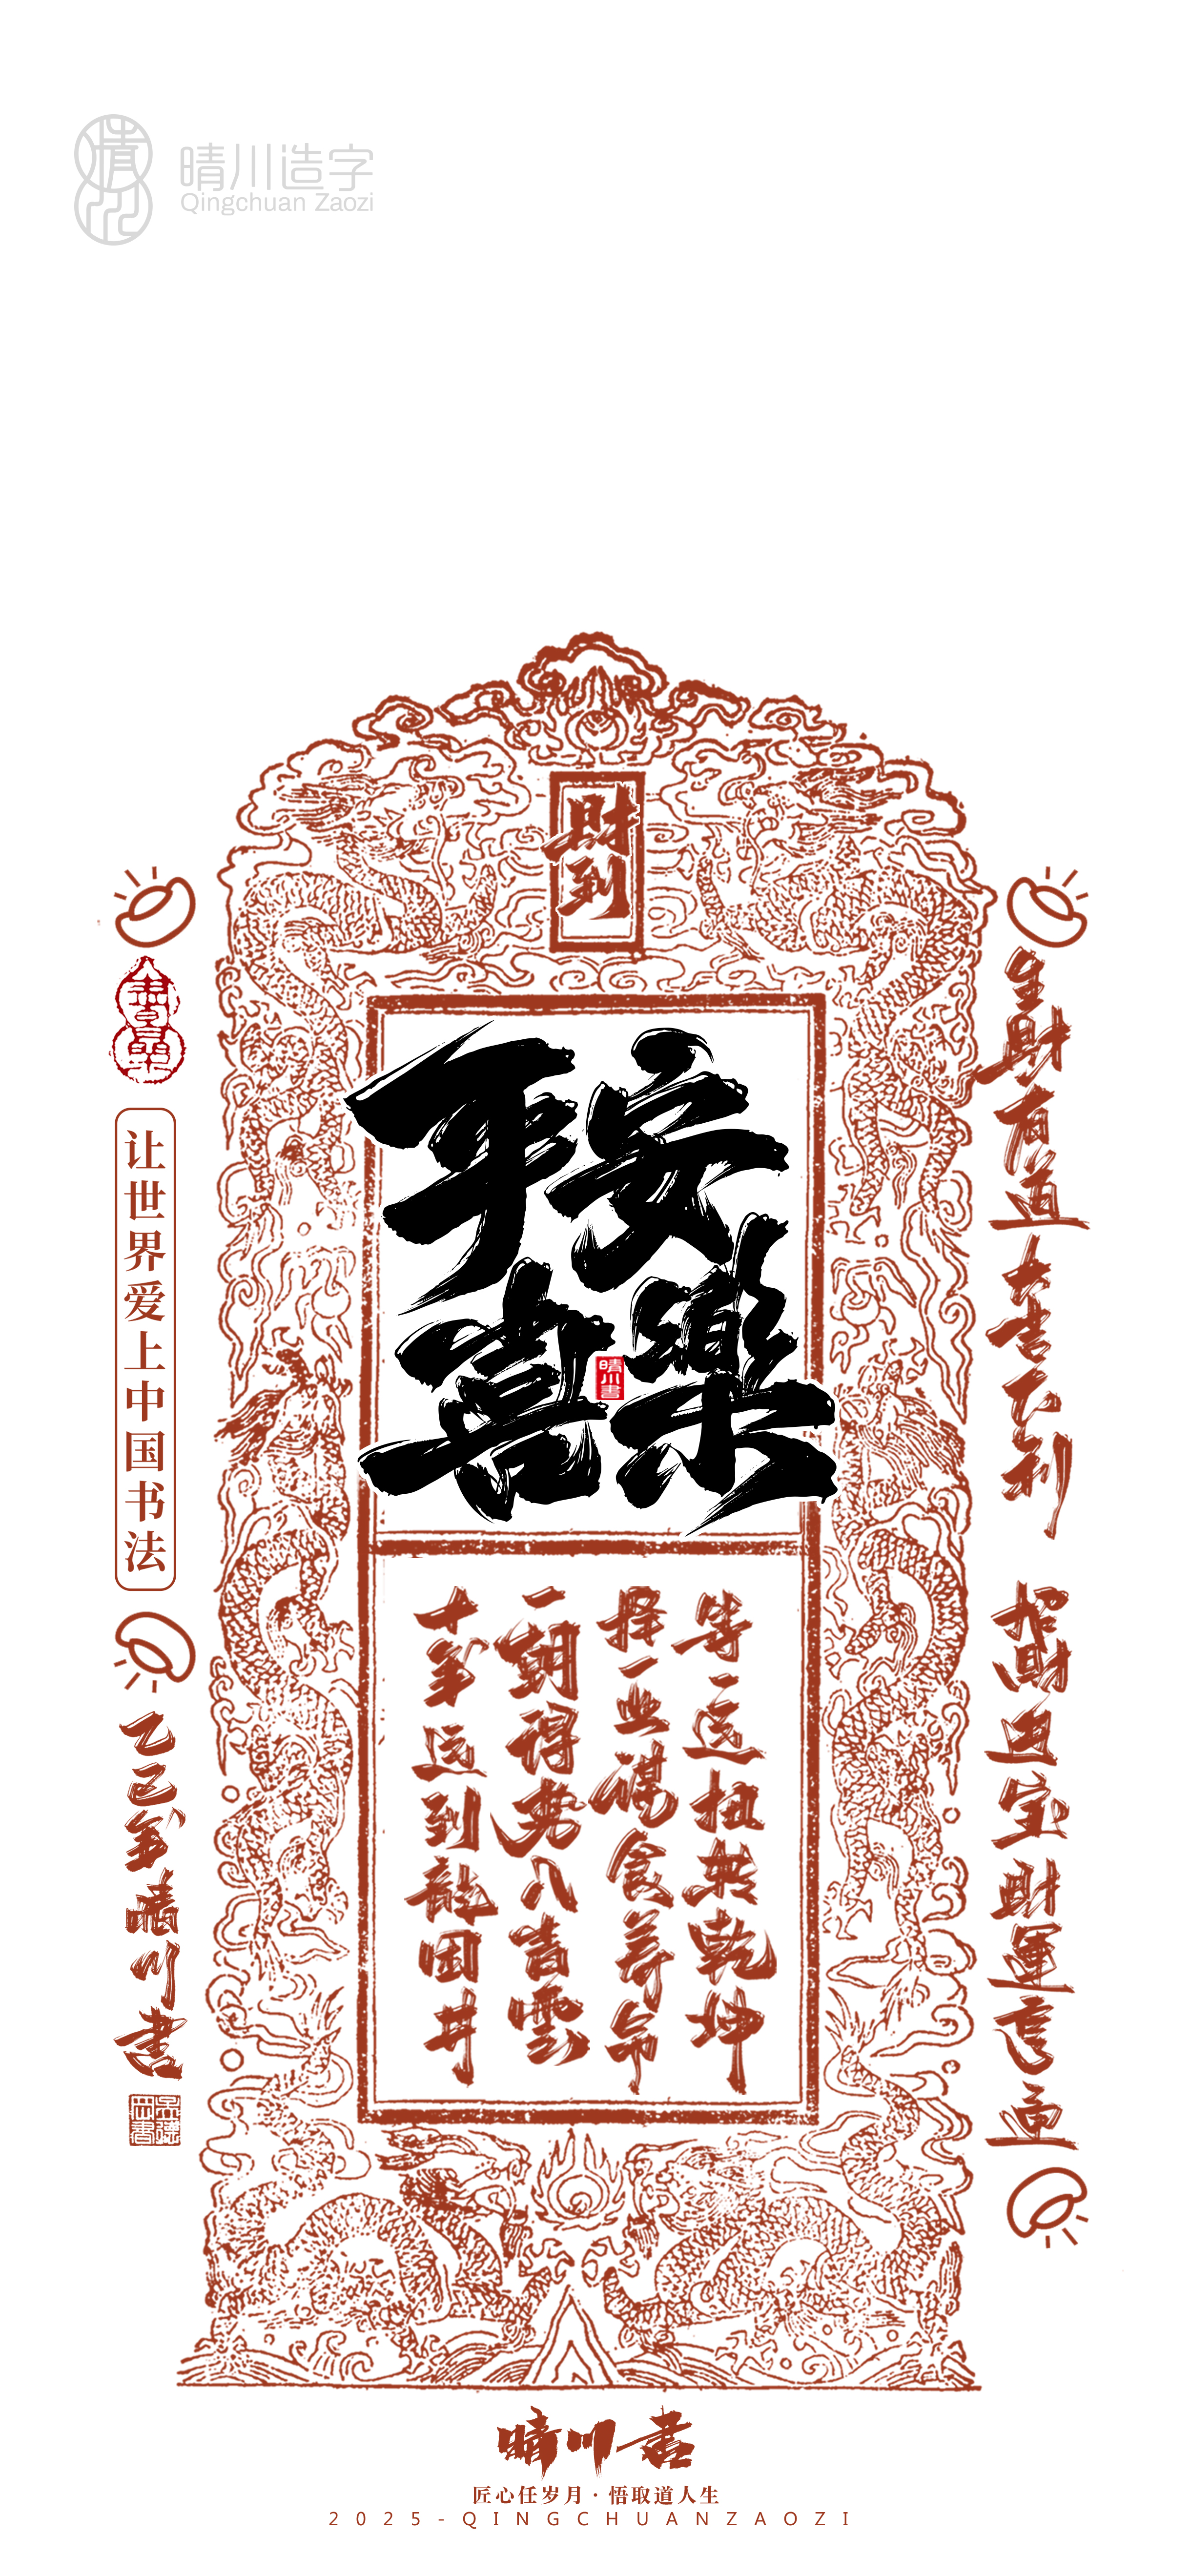 晴川造字
Qingchuan Zaozi
財到
平安
喜樂
晴川書
生財有道大吉大利
招財進宝財運亨通
等一运扭转乾坤
择一业谋食养命
一朝得势入青雲
十年运到龍困井
让世界爱上中国书法
乙巳年晴川書
晴川書
匠心任岁月·悟取道人生
2025-QINGCHUANZAOZI